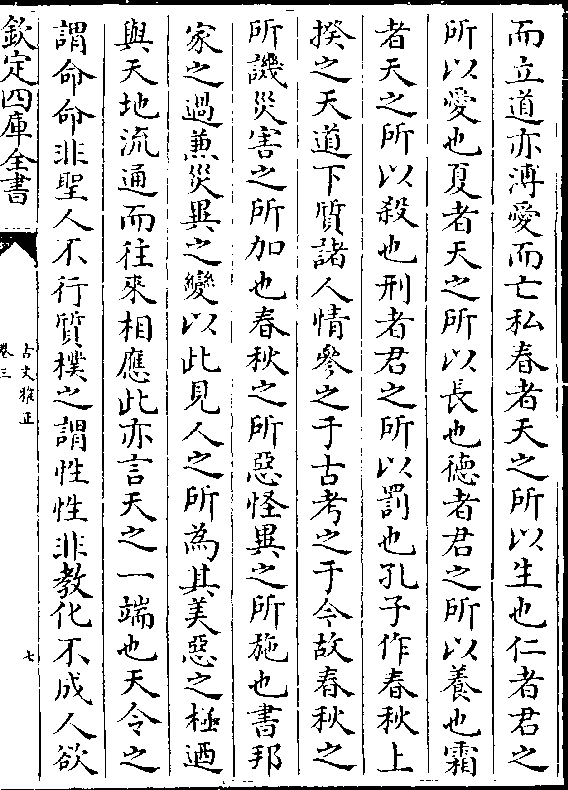 而立道亦溥愛而亡私春者天之所以生也仁者君之
所以愛也夏者天之所以長也徳者君之所以養也霜
者天之所以殺也刑者君之所以罰也孔子作春秋上
揆之天道下質諸人情參之于古考之于今故春秋之
所譏災害之所加也春秋之所惡怪異之所施也書邦
家之過兼災異之變以此見人之所為其美惡之極迺
與天地流通而往來相應此亦言天之一端也天令之
謂命命非聖人不行質樸之謂性性非教化不成人欲
欽定四庫全書
古文雅正
卷三
七